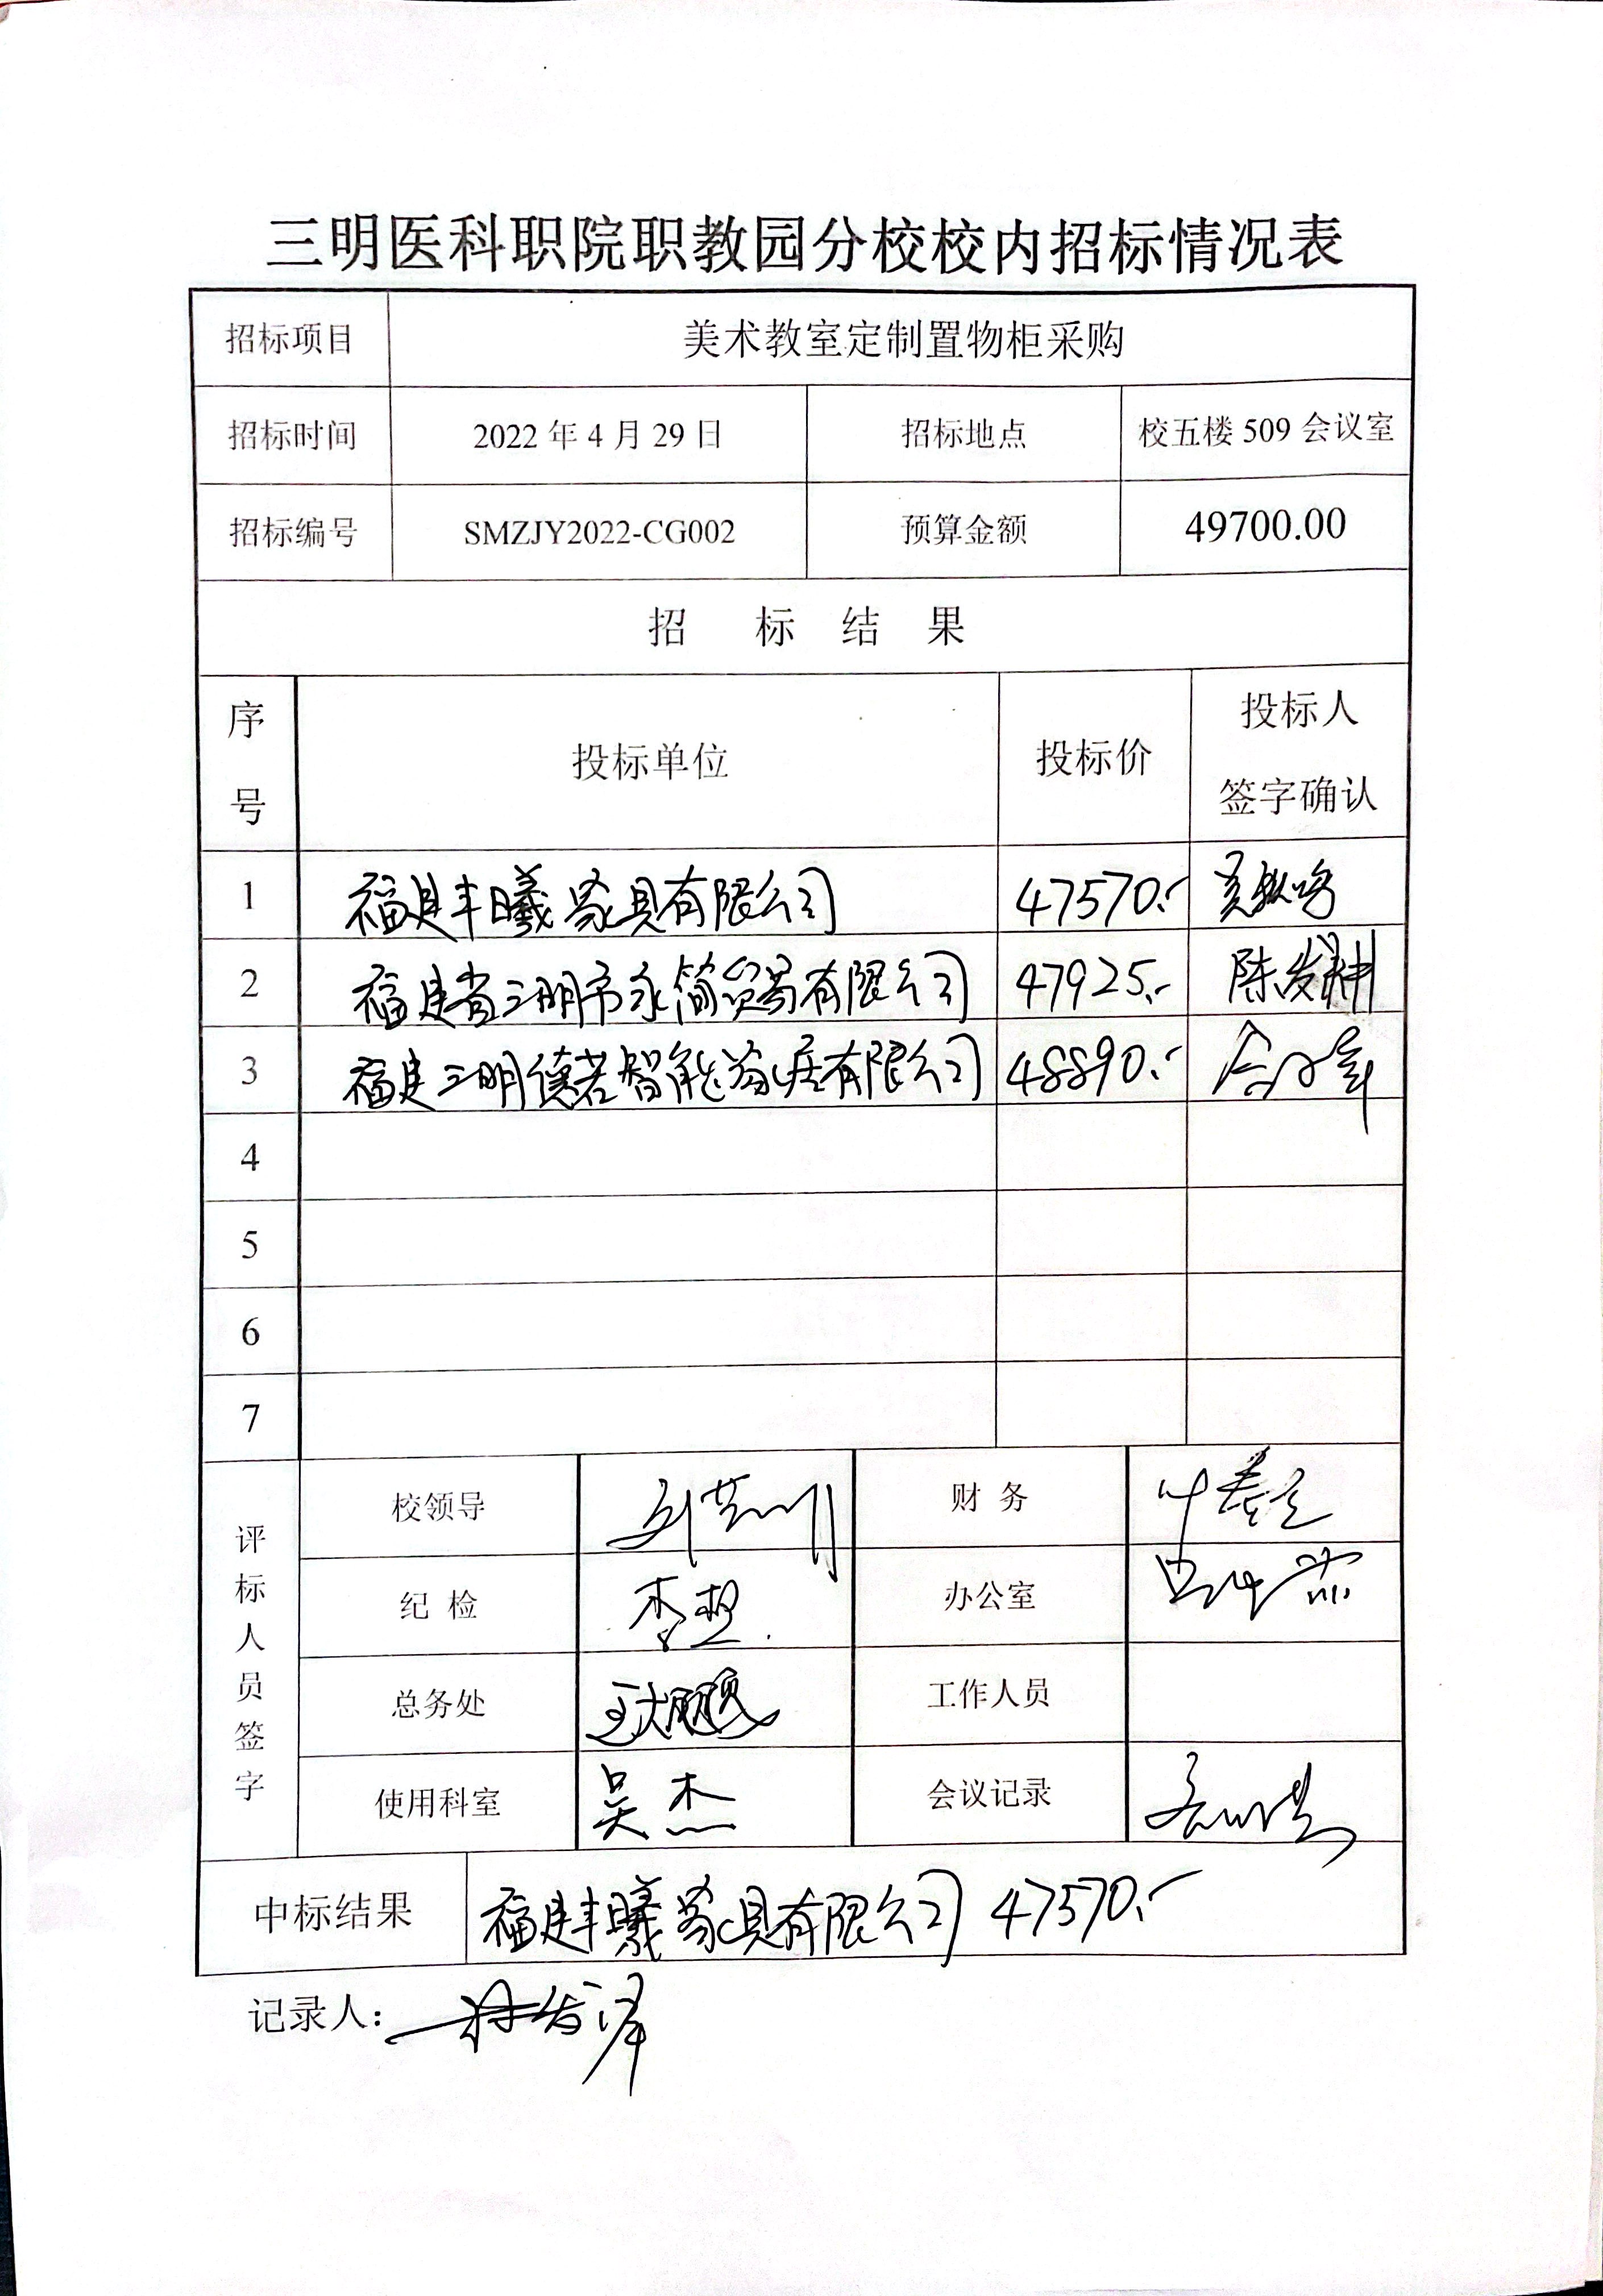 三明医科职院职教园分校校内招标情况表
招标项目 美术教室定制置物柜采购
招标时间 2022年4月29日 招标地点 校五楼509会议室
招标编号 SMZJY2022-CG002 预算金额 49700.00
招 标 结 果
序号 投标单位 投标价 投标人签字确认
1 福建丰曦家具有限公司 47570.-
2 福建省三明市永简贸易有限公司 47925.- 陈发耕
3 福建三明德若智能家居有限公司 48890.-
4
5
6
7
评标人员签字
校领导 财 务
纪 检 李想 办公室
总务处 王大鹏 工作人员
使用科室 吴杰 会议记录
中标结果 福建丰曦家具有限公司 47570.-
记录人: